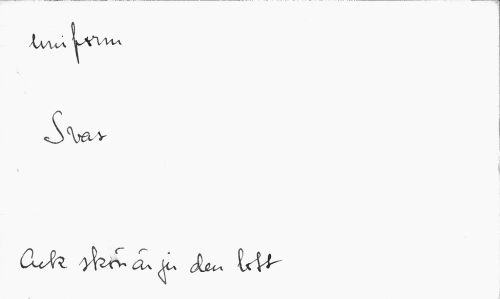 uniform
Svas
Ack skön är ju den lott